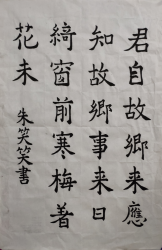 君自故鄉來應
知故鄉事来日
綺窗前寒梅著
花未
朱笑笑書